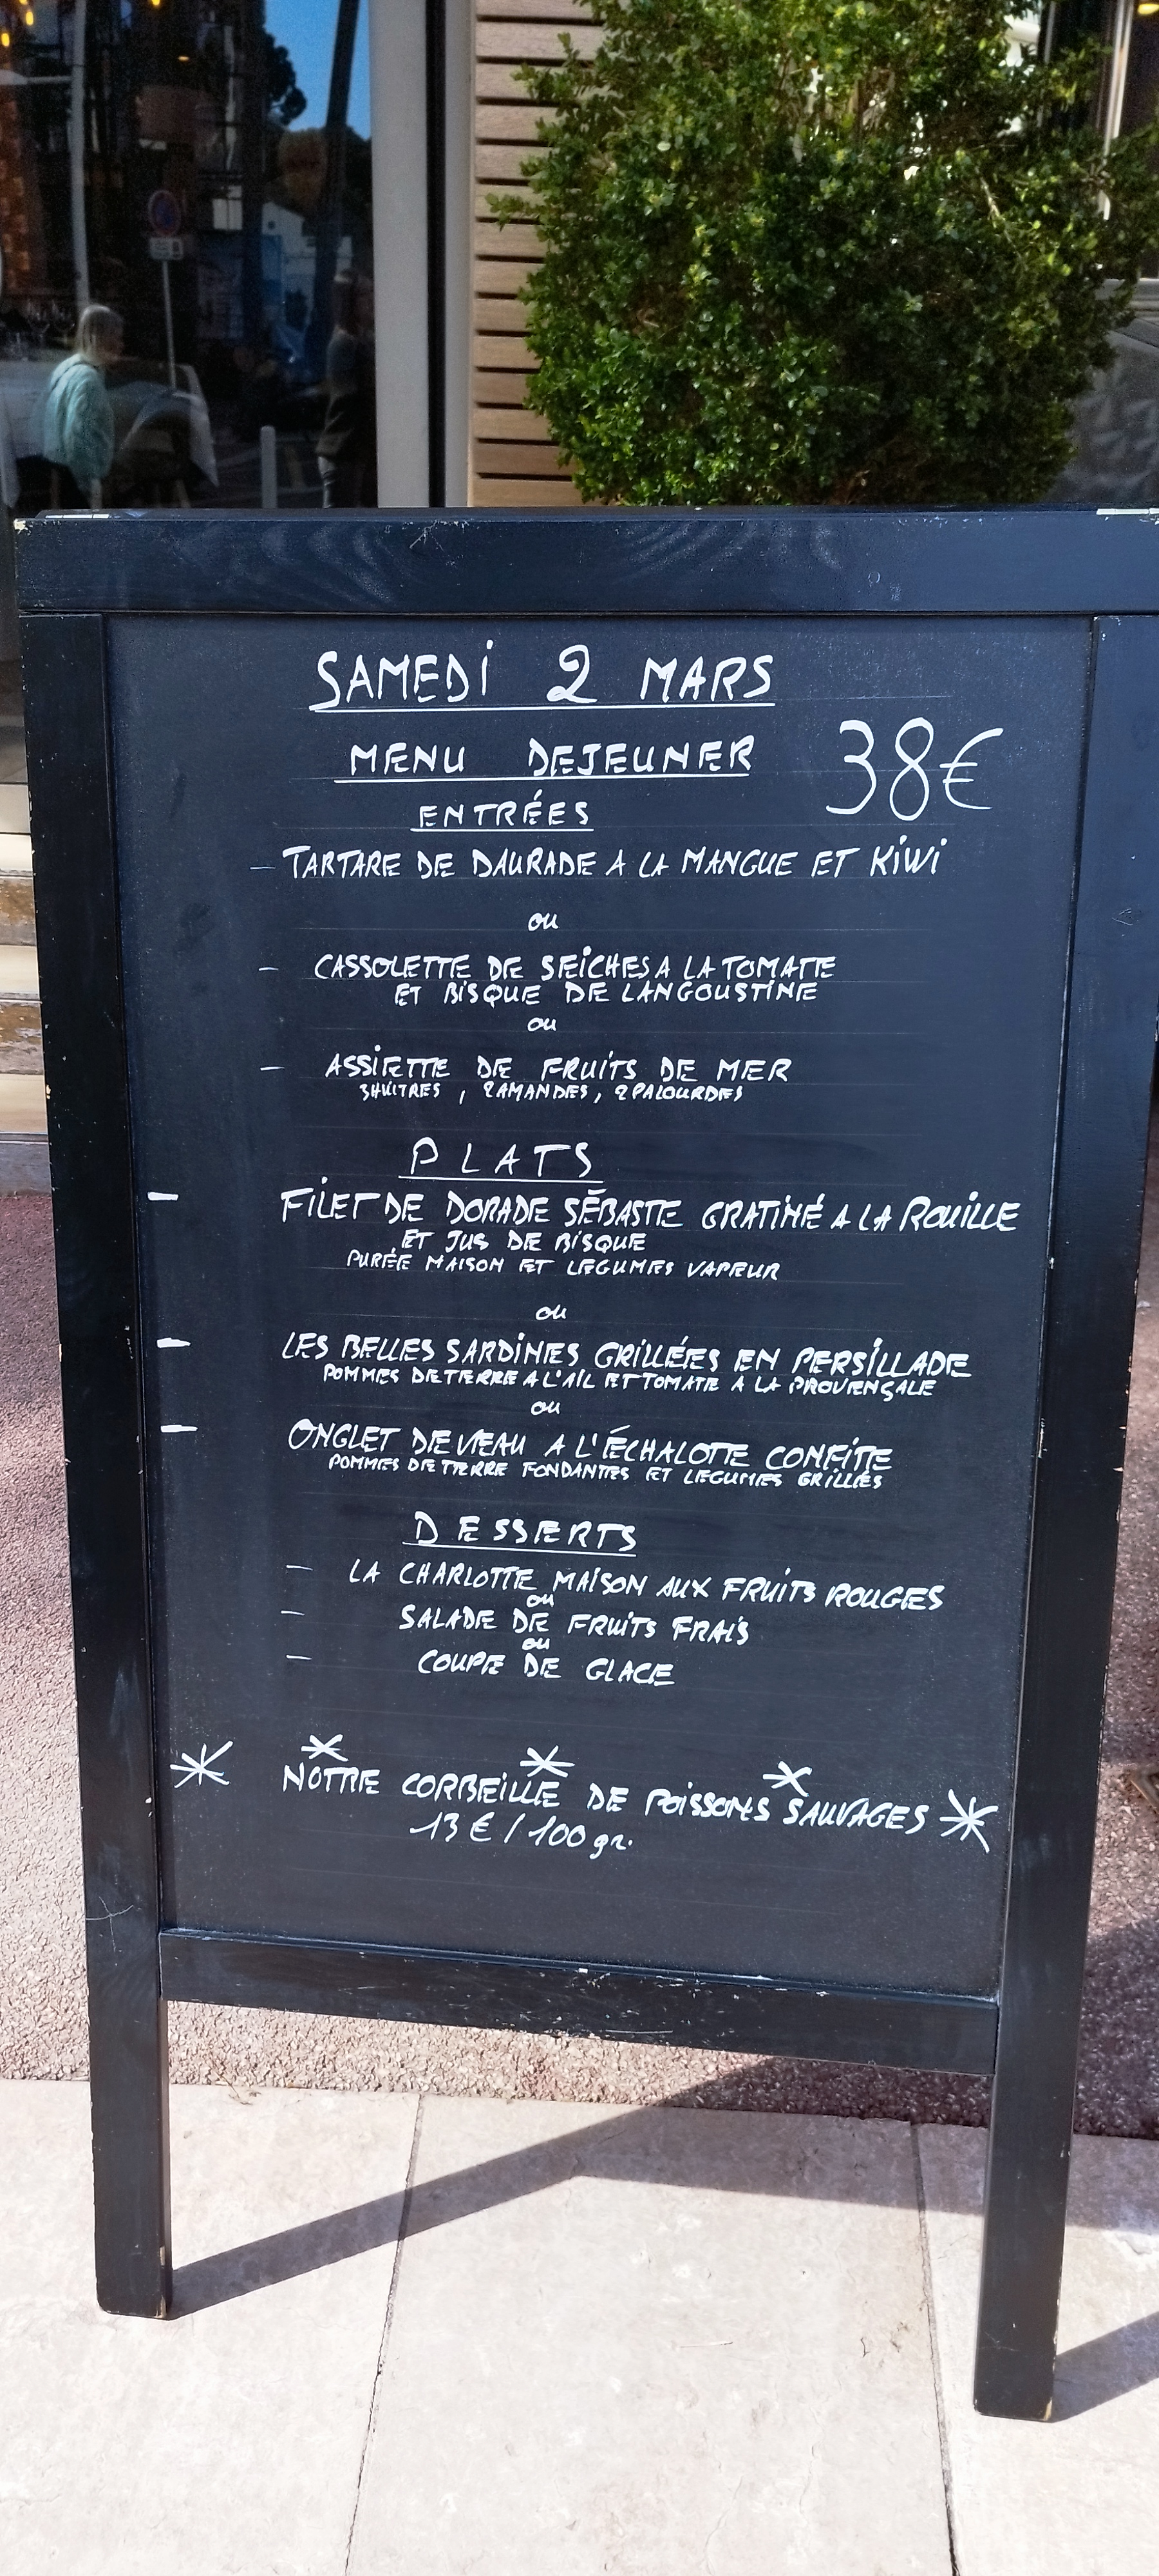 SAMEDI 2 MARS
MENU DEJEUNER 38€
ENTRÉES
- TARTARE DE DAURADE A LA MANGUE ET KIWI
ou
- CASSOLETTE DE SEICHES A LA TOMATE
ET BISQUE DE LANGOUSTINE
ou
- ASSIETTE DE FRUITS DE MER
3 HUITRES, 2 AMANDES, 2 PALOURDES
PLATS
- FILET DE DORADE SÉBASTE GRATINÉ A LA ROUILLE
ET JUS DE BISQUE
PURÉE MAISON ET LEGUMES VAPEUR
ou
- LES BELLES SARDINES GRILLÉES EN PERSILLADE
POMMES DE TERRE A L'AIL ET TOMATE A LA PROVENÇALE
ou
- ONGLET DE VEAU A L'ÉCHALOTTE CONFITE
POMMES DE TERRE FONDANTES ET LEGUMES GRILLÉS
DESSERTS
- LA CHARLOTTE MAISON AUX FRUITS ROUGES
ou
- SALADE DE FRUITS FRAIS
ou
- COUPE DE GLACE
NOTRE CORBEILLE DE POISSONS SAUVAGES
13€/100gr.